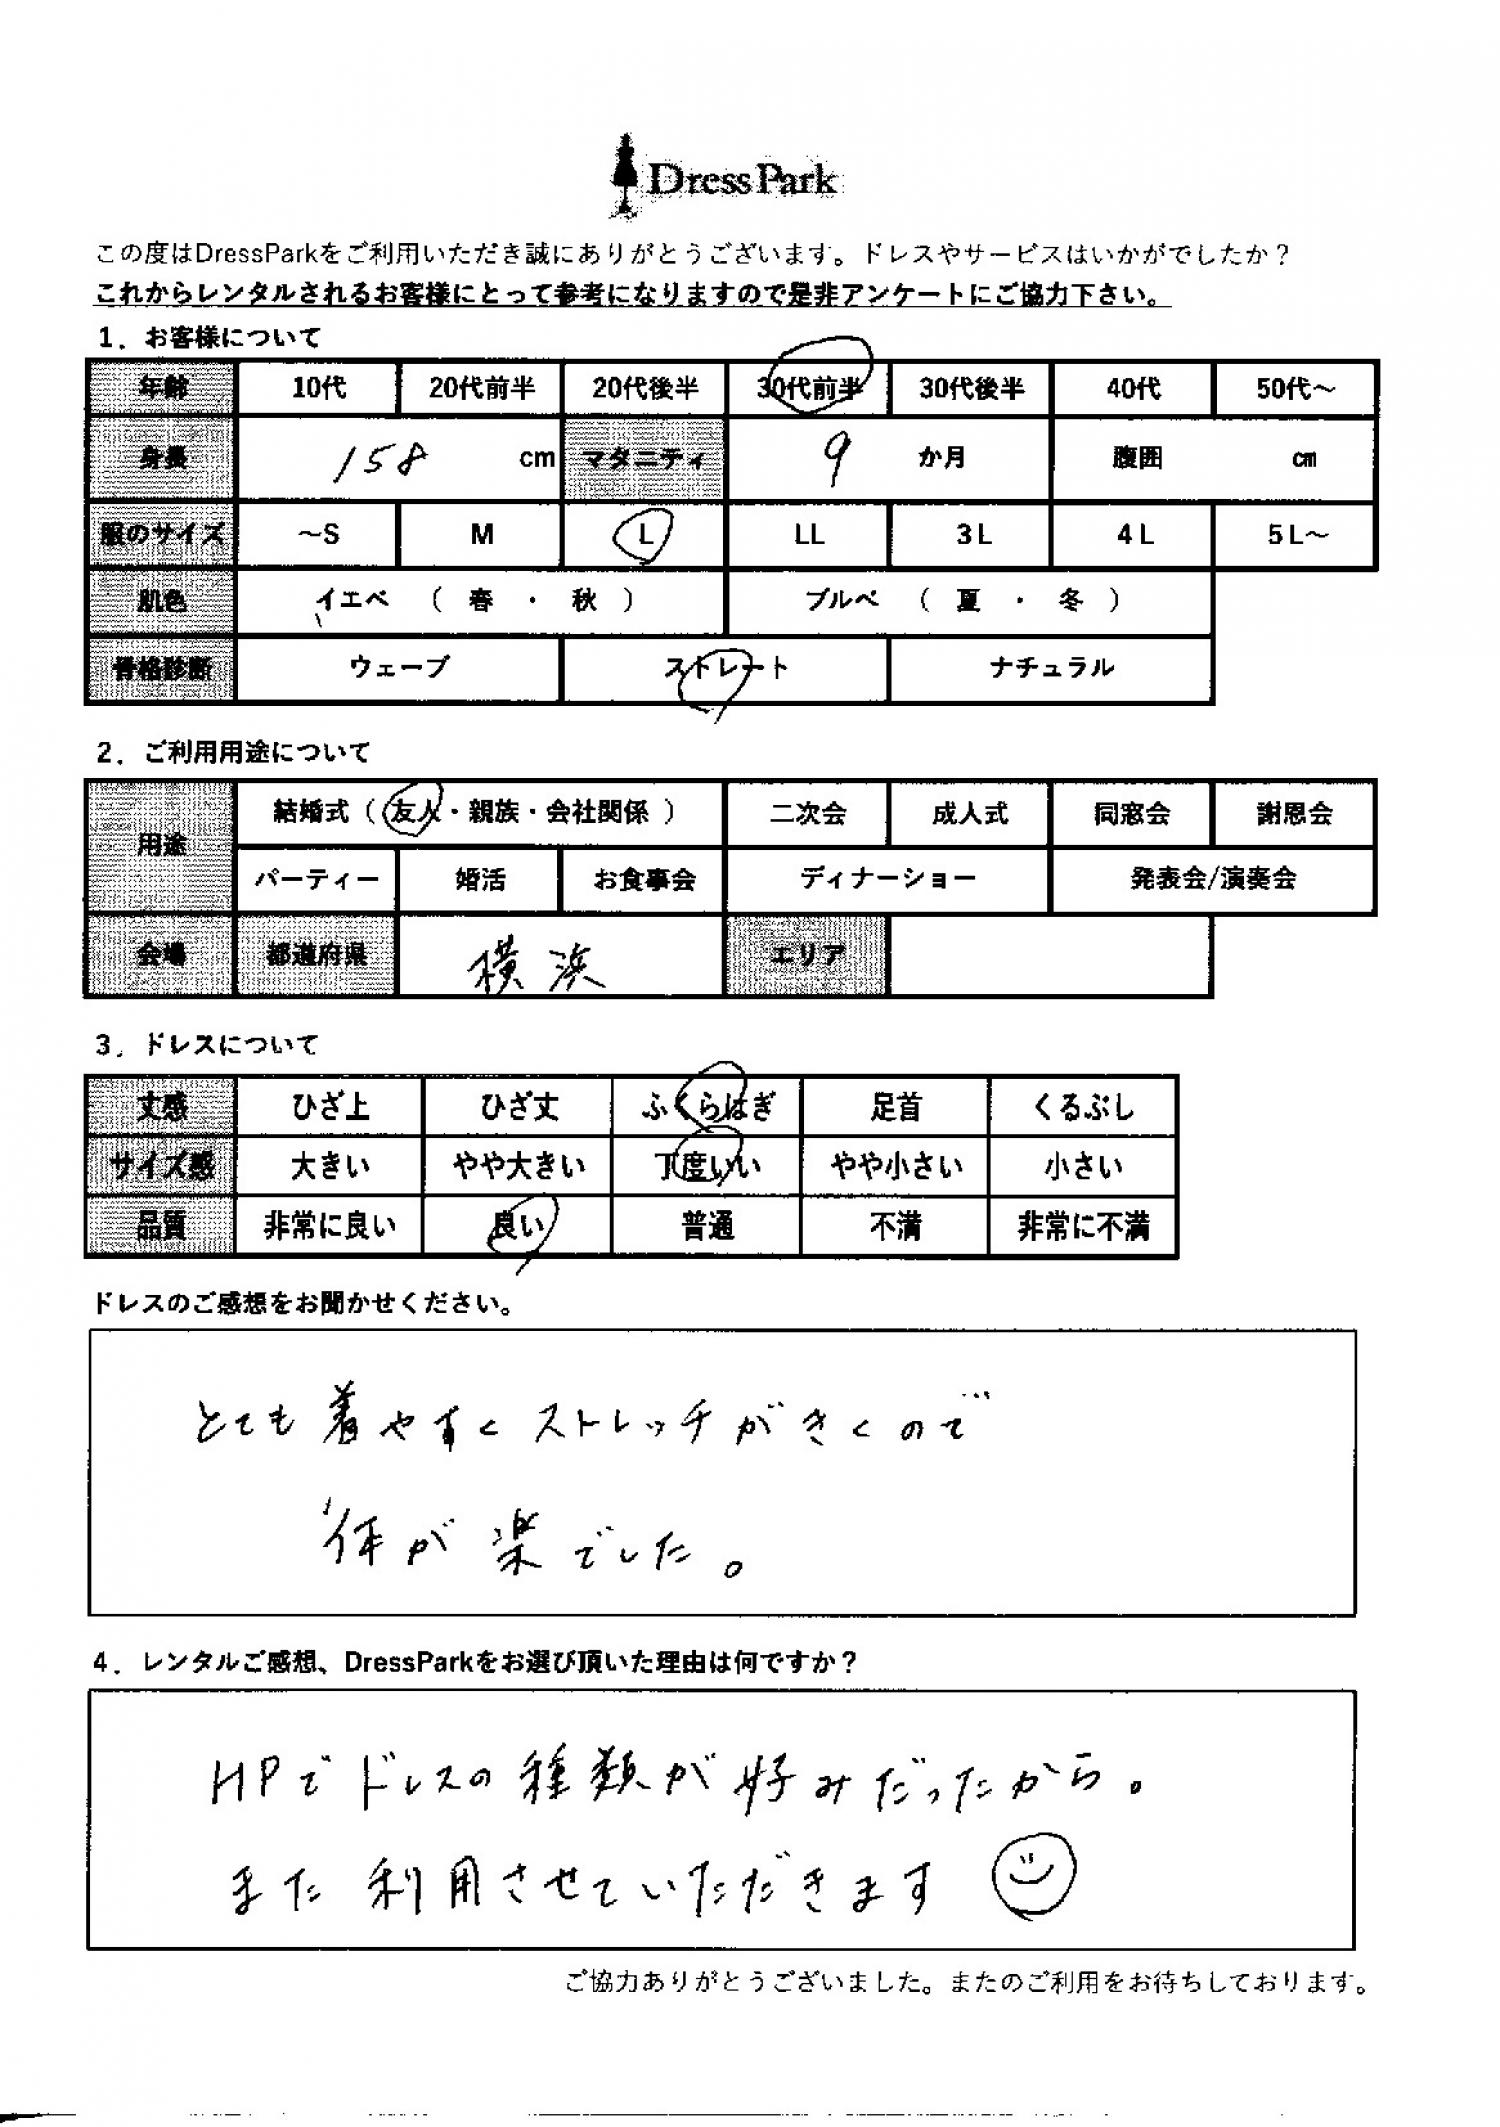 DressPark
この度はDressParkをご利用いただき誠にありがとうございます。ドレスやサービスはいかがでしたか？
これからレンタルされるお客様にとって参考になりますので是非アンケートにご協力下さい。
1．お客様について
年齢 10代 20代前半 20代後半 30代前半 30代後半 40代 50代～
身長 158 cm マタニティ 9 か月 腹囲 cm
服のサイズ ～S M L LL 3L 4L 5L～
肌色 イエベ （ 春 ・ 秋 ） ブルベ （ 夏 ・ 冬 ）
骨格診断 ウェーブ ストレート ナチュラル
2．ご利用用途について
用途 結婚式（ 友人・親族・会社関係 ） 二次会 成人式 同窓会 謝恩会
パーティー 婚活 お食事会 ディナーショー 発表会/演奏会
会場 都道府県 横浜 エリア
3．ドレスについて
丈感 ひざ上 ひざ丈 ふくらはぎ 足首 くるぶし
サイズ感 大きい やや大きい 丁度いい やや小さい 小さい
品質 非常に良い 良い 普通 不満 非常に不満
ドレスのご感想をお聞かせください。
とても着やすくストレッチがきくので
体が楽でした。
4．レンタルご感想、DressParkをお選び頂いた理由は何ですか？
HPでドレスの種類が好みだったから。
また利用させていただきます
ご協力ありがとうございました。またのご利用をお待ちしております。